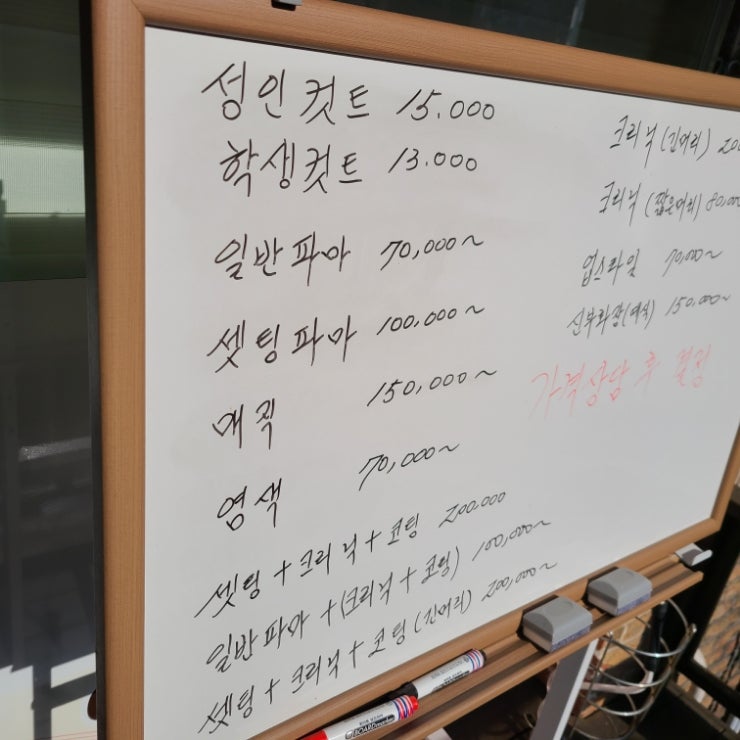 성인컷트 15.000
학생컷트 13.000
일반파마 70,000~
셋팅파마 100,000~
매직 150,000~
염색 70,000~
셋팅 + 크리닉 + 코팅 200.000
일반파마 + (크리닉 + 코팅) 100,000~
셋팅 + 크리닉 + 코팅 (긴머리) 200,000~
크리닉 (긴머리) 200
크리닉 (짧은머리) 80,000
업스타일 70,000~
신부화장 (예식) 150,000~
가격상담 후 결정